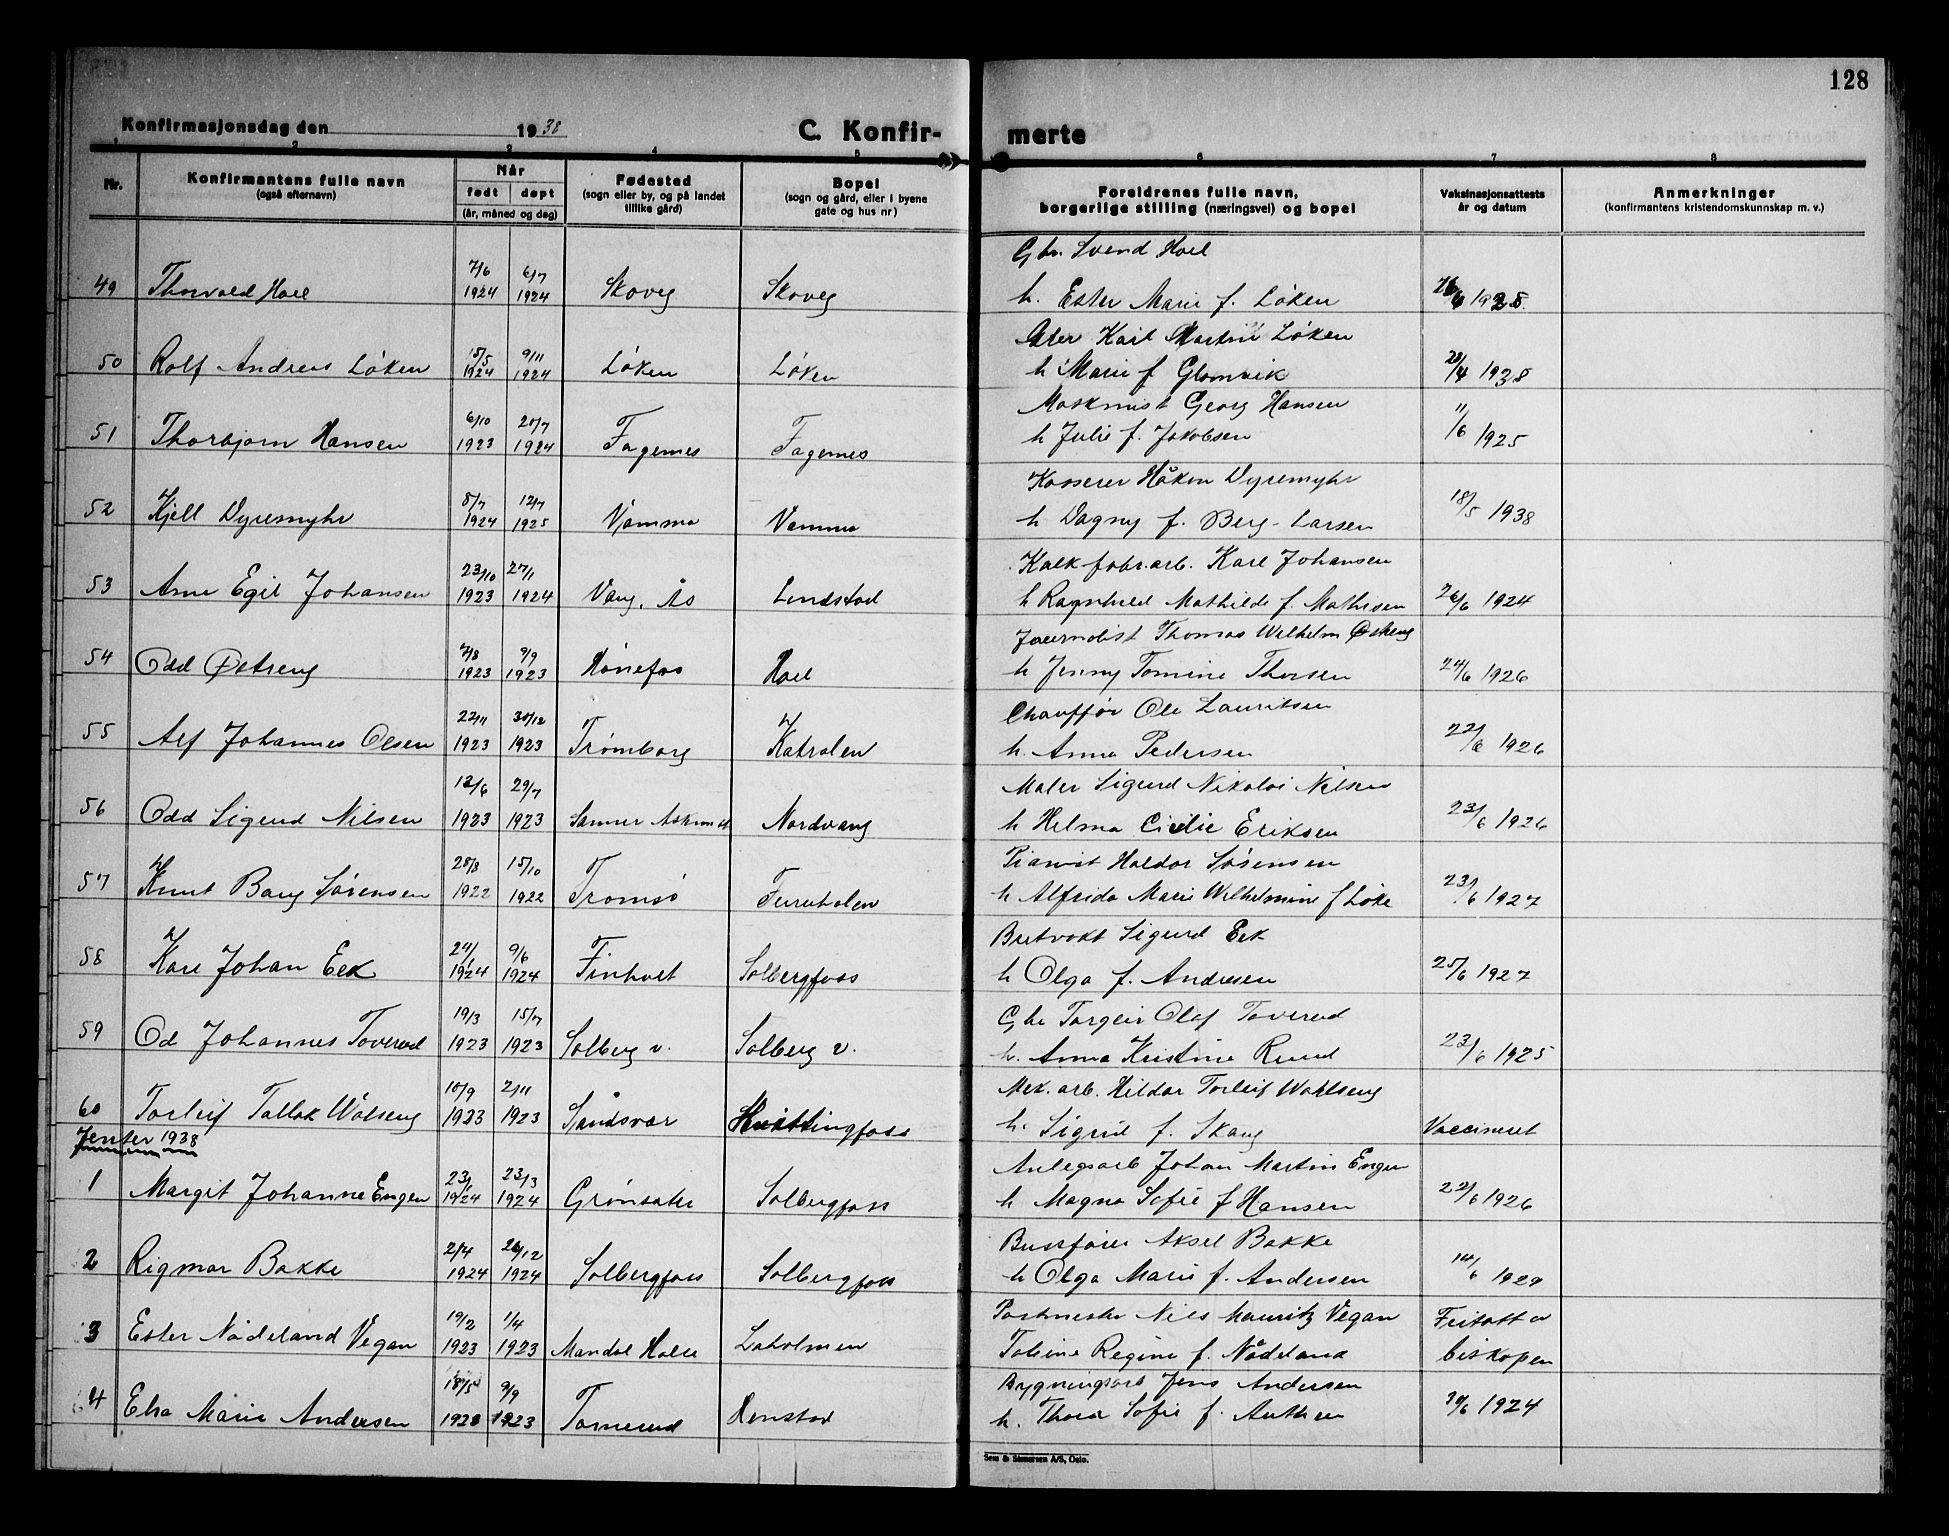 128
Konfirmasjonsdag den 1938
C. Konfirmerte
1 2 3 4 5 6 7 8
Nr.
Konfirmantens fulle navn
(også efternavn)
Når
født døpt
(år, måned og dag)
Fødested
(sogn eller by, og på landet
tillike gård)
Bopel
(sogn og gård, eller i byene
gate og hus nr)
Foreldrenes fulle navn,
borgerlige stilling (næringsvei) og bopel
Vaksinasjonsattests
år og datum
Anmerkninger
(konfirmantens kristendomskunnskap m. v.)
Gbr. Svend Hoel
49 Thorvald Hoel 7/6 1924 6/7 1924 Skoveg Skoveg h. Ester Marie f. Løken 1928
Karl Martin Løken
50 Rolf Andreas Løken 15/5 1924 9/11 1924 Løken Løken h Marie f Glomvik 20/4 1938
Maskmist Georg Hansen
51 Thorbjørn Hansen 6/10 1923 20/7 1924 Fagernes Fagernes h Julie f. Jakobsen 11/6 1925
Kasserer Håken Dyremyhr
52 Kjell Dyremyhr 8/7 1924 12/7 1925 Vamma Vamma h Dagny f. Berg-Larsen 18/5 1938
Kalkfabr.arb. Karl Johansen
53 Arne Egil Johansen 23/10 1923 27/1 1924 Vang, Ås Lindstad h Ragnhild Mathilde f. Mathisen 26/6 1924
Journalist Thomas Wilhelm Østreng
54 Odd Østreng 7/8 1923 9/9 1923 Hønefos Hoel h Jenny Tomine Thorsen 24/6 1926
Chauffør Ole Lauritsen
55 Alf Johannes Olsen 22/11 1923 30/12 1923 Trømborg Katralen h. Anna Pedersen 22/6 1926
Maler Sigurd Nikolai Nilsen
56 Odd Sigurd Nilsen 13/6 1923 29/7 1923 Sanner Askim Nordvang h Helma Cicilie Eriksen 23/6 1926
Pianist Haldor Sørensen
57 Knut Bang Sørensen 28/8 1922 15/10 1922 Tromsø Furuholen h Alfrida Marie Wilhelmine f Løke 23/6 1927
Brukvakt Sigurd Eek
58 Kare Johan Eek 24/1 1924 9/6 1924 Finholt Solbergfoss h Olga f. Andresen 25/6 1927
Gbr Torgeir Olaf Toverud
59 Od Johannes Toverud 19/3 1923 15/7 1923 Solberg v. Solberg v. h. Anna Kristine Ruud 23/6 1925
Mek. arb. Hildar Torleif Wahlseng
60 Torleif Tallak Walseng 10/9 1923 2/11 1923 Sandsvær Hvittingfoss h. Sigrid f. Skaug Vaccineret
Jenter 1938
Anlegsarb Johan Martin Engen
1 Margit Johanne Engen 23/1 1924 23/3 1924 Grønsater Solbergfoss h Magna Sofie f Hansen 22/6 1926
Bussfører Aksel Bakke
2 Rigmor Bakke 2/4 1924 26/12 1924 Solbergfoss Solbergfoss h Olga Marie f. Andersen 14/6 1929
Postmester Nils Mauritz Vegan Fritatt av
3 Ester Nådeland Vegan 19/2 1923 1/4 1923 Mandal Halse Laholmen Tobine Regine f. Nådeland biskopen
Bygningsarb Jens Andersen
4 Elsa Marie Andersen 18/5 1923 9/9 1923 Tomerud Henstad h. Thora Sofie f. Anthsen 30/6 1924
Sem & Stenersen A/S, Oslo.